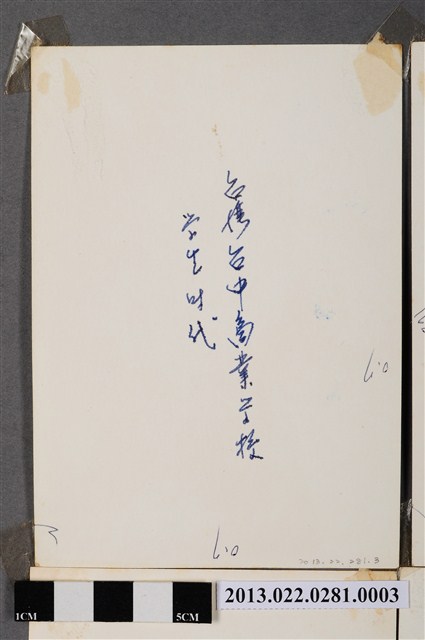 台湾台中商業学校
学生时代
2013.022.281.3
1CM
5CM
2013.022.0281.0003